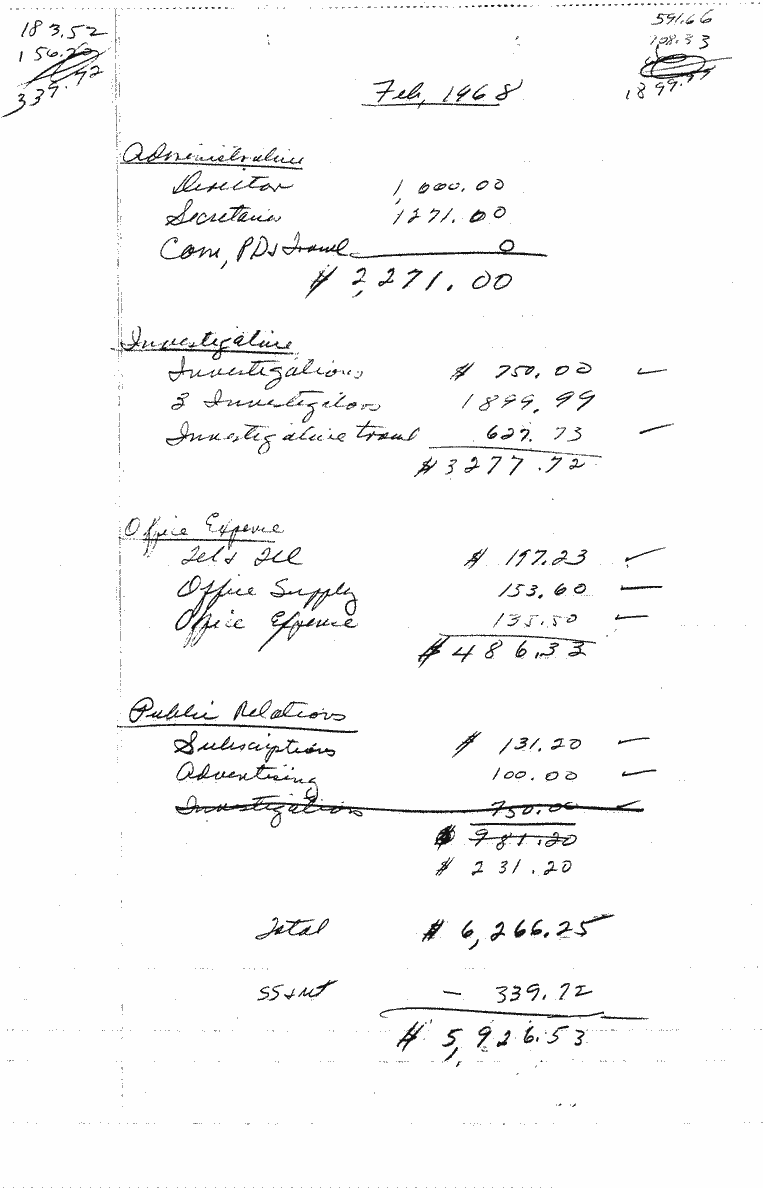 183.52
156.20
339.72
591.66
708.33
1899.99
Feb, 1968
Administrative
Director 1,000.00
Secretaries 1271.00
Com, PD & Travel 0
$ 2,271.00
Investigative
Investigations $ 750.00
3 Investigators 1899.99
Investigative travel 627.73
$ 3277.72
Office Expense
Tel & Tel $ 197.23
Office Supply 153.60
Office Expense 135.50
$ 486.33
Public Relations
Subscriptions $ 131.20
Advertising 100.00
Investigations 750.00
$ 981.20
$ 231.20
Total $ 6,266.25
SS & WT - 339.72
$ 5,926.53